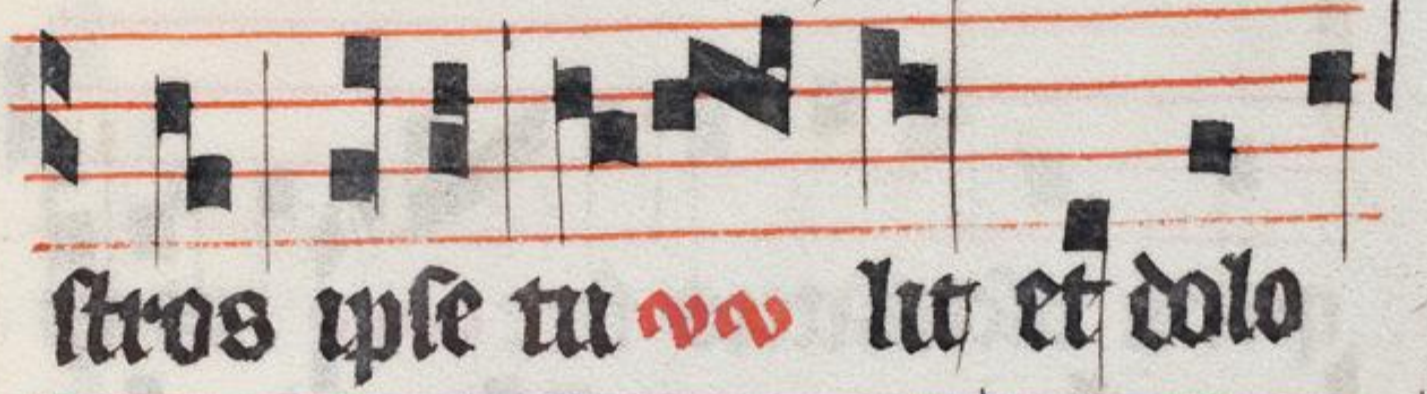 ſtros ıpſe tu lıt et dolo